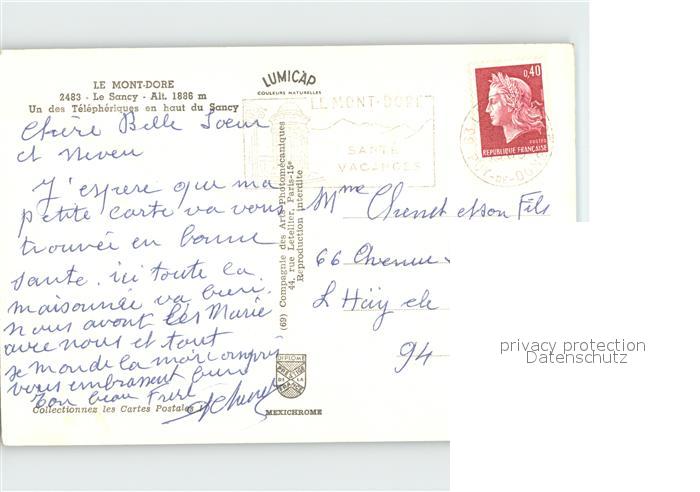 LE MONT-DORE
2483 - Le Sancy - Alt. 1886 m
Un des Téléphériques en haut du Sancy
LUMICAP
COULEURS NATURELLES
LE MONT-DORE
SANTÉ
VACANCES
0,40
POSTES
REPUBLIQUE FRANÇAISE
63
PUY-DE-DÔME
Chère Belle Soeur
et Neveu
J'espere que ma
petite carte va vous
trouvée en bonne
sante. ici toute la
maisonnée va bien.
nous avont les Marie
avec nous et tout
se monde la moi compris
vous embrassent bien
ton beau Frere
(69) Compagnie des Arts Photomécaniques
44, rue Letellier, Paris-15e
Reproduction interdite
Mme Chenet et son Fils
66 Avenue
L Haÿ
94
DIPLOME
DE LA
MEXICHROME
Collectionnez les Cartes Postales
privacy protection
Datenschutz